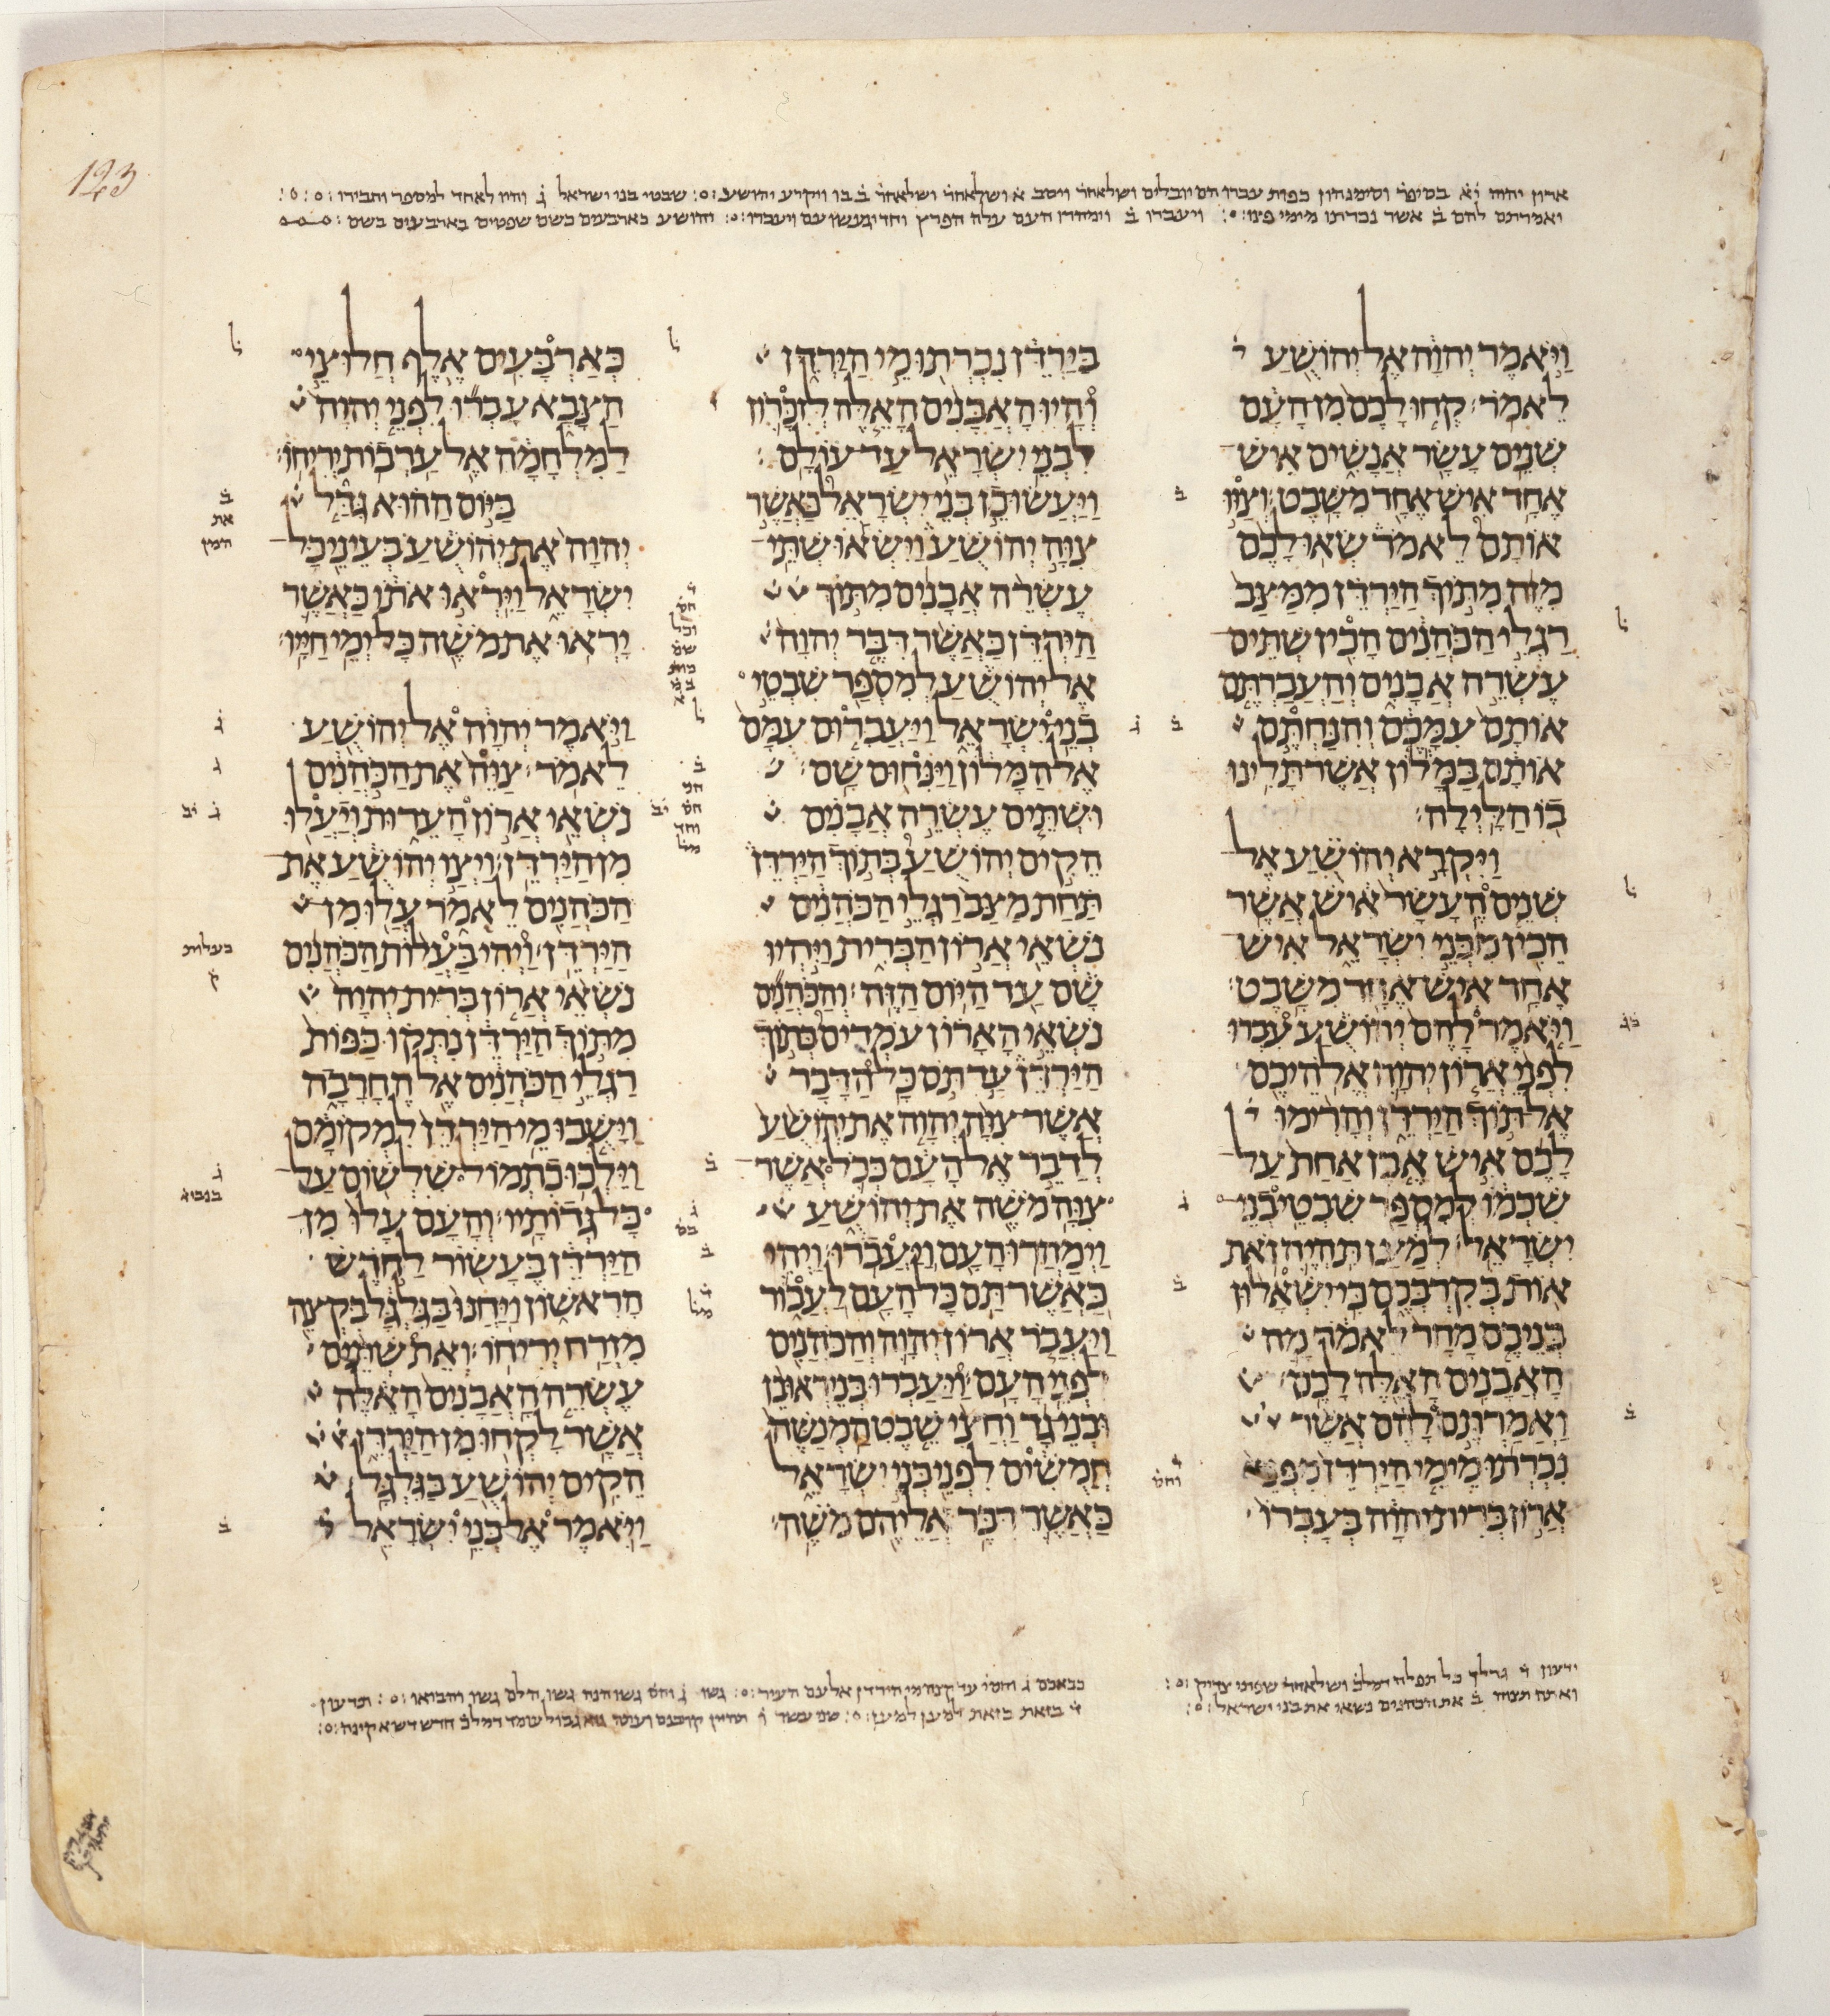 123
ארון יהוה יא בסיפר וסימנהון כפות עברו הם יובלים ושלאחר ויסב א ושלאחר ושלאחר ב בו ויקרע יהושע שבטי בני ישראל ג והיו לאחד למספר וחבירו
ואמרתם להם ב אשר נכרתו מימי פינו ויעברו ב וימהרו העם עלה הפרץ
וַיֹּאמֶר יְהוָה אֶל יְהוֹשֻׁעַ
לֵאמֹר׃ קְחוּ לָכֶם מִן הָעָם
שְׁנֵים עָשָׂר אֲנָשִׁים אִישׁ
אֶחָד אִישׁ אֶחָד מִשָּׁבֶט׃ וְצַוּוּ
אוֹתָם לֵאמֹר שְׂאוּ לָכֶם
מִזֶּה מִתּוֹךְ הַיַּרְדֵּן מִמַּצַּב
רַגְלֵי הַכֹּהֲנִים הָכִין שְׁתֵּים
עֶשְׂרֵה אֲבָנִים וְהַעֲבַרְתֶּם
אוֹתָם עִמָּכֶם וְהִנַּחְתֶּם
אוֹתָם בַּמָּלוֹן אֲשֶׁר תָּלִינוּ
בוֹ הַלָּיְלָה׃
וַיִּקְרָא יְהוֹשֻׁעַ אֶל
שְׁנֵים הֶעָשָׂר אִישׁ אֲשֶׁר
הֵכִין מִבְּנֵי יִשְׂרָאֵל אִישׁ
אֶחָד אִישׁ אֶחָד מִשָּׁבֶט׃
וַיֹּאמֶר לָהֶם יְהוֹשֻׁעַ עִבְרוּ
לִפְנֵי אֲרוֹן יְהוָה אֱלֹהֵיכֶם
אֶל תּוֹךְ הַיַּרְדֵּן וְהָרִימוּ
לָכֶם אִישׁ אֶבֶן אַחַת עַל
שִׁכְמוֹ לְמִסְפַּר שִׁבְטֵי בְנֵי
יִשְׂרָאֵל׃ לְמַעַן תִּהְיֶה זֹאת
אוֹת בְּקִרְבְּכֶם כִּי יִשְׁאָלוּן
בְּנֵיכֶם מָחָר לֵאמֹר מָה
הָאֲבָנִים הָאֵלֶּה לָכֶם׃
וַאֲמַרְתֶּם לָהֶם אֲשֶׁר
נִכְרְתוּ מֵימֵי הַיַּרְדֵּן מִפְּנֵי
אֲרוֹן בְּרִית יְהוָה בְּעָבְרוֹ
בַּיַּרְדֵּן נִכְרְתוּ מֵי הַיַּרְדֵּן
וְהָיוּ הָאֲבָנִים הָאֵלֶּה לְזִכָּרוֹן
לִבְנֵי יִשְׂרָאֵל עַד עוֹלָם׃
וַיַּעֲשׂוּ כֵן בְּנֵי יִשְׂרָאֵל כַּאֲשֶׁר
צִוָּה יְהוֹשֻׁעַ וַיִּשְׂאוּ שְׁתֵּי
עֶשְׂרֵה אֲבָנִים מִתּוֹךְ
הַיַּרְדֵּן כַּאֲשֶׁר דִּבֶּר יְהוָה
אֶל יְהוֹשֻׁעַ לְמִסְפַּר שִׁבְטֵי
בְנֵי יִשְׂרָאֵל וַיַּעֲבִרוּם עִמָּם
אֶל הַמָּלוֹן וַיַּנִּחוּם שָׁם׃
וּשְׁתֵּים עֶשְׂרֵה אֲבָנִים
הֵקִים יְהוֹשֻׁעַ בְּתוֹךְ הַיַּרְדֵּן
תַּחַת מַצַּב רַגְלֵי הַכֹּהֲנִים
נֹשְׂאֵי אֲרוֹן הַבְּרִית וַיִּהְיוּ
שָׁם עַד הַיּוֹם הַזֶּה׃ וְהַכֹּהֲנִים
נֹשְׂאֵי הָאָרוֹן עֹמְדִים בְּתוֹךְ
הַיַּרְדֵּן עַד תֹּם כָּל הַדָּבָר
אֲשֶׁר צִוָּה יְהוָה אֶת יְהוֹשֻׁעַ
לְדַבֵּר אֶל הָעָם כְּכֹל אֲשֶׁר
צִוָּה מֹשֶׁה אֶת יְהוֹשֻׁעַ
וַיְמַהֲרוּ הָעָם וַיַּעֲבֹרוּ׃ וַיְהִי
כַּאֲשֶׁר תַּם כָּל הָעָם לַעֲבוֹר
וַיַּעֲבֹר אֲרוֹן יְהוָה וְהַכֹּהֲנִים
לִפְנֵי הָעָם׃ וַיַּעַבְרוּ בְּנֵי רְאוּבֵן
וּבְנֵי גָד וַחֲצִי שֵׁבֶט הַמְנַשֶּׁה
חֲמֻשִׁים לִפְנֵי בְּנֵי יִשְׂרָאֵל
כַּאֲשֶׁר דִּבֶּר אֲלֵיהֶם מֹשֶׁה׃
כְּאַרְבָּעִים אֶלֶף חֲלוּצֵי
הַצָּבָא עָבְרוּ לִפְנֵי יְהוָה
לַמִּלְחָמָה אֶל עַרְבוֹת יְרִיחוֹ׃
בַּיּוֹם הַהוּא גִּדַּל
יְהוָה אֶת יְהוֹשֻׁעַ בְּעֵינֵי כָּל
יִשְׂרָאֵל וַיִּרְאוּ אֹתוֹ כַּאֲשֶׁר
יָרְאוּ אֶת מֹשֶׁה כָּל יְמֵי חַיָּיו׃
וַיֹּאמֶר יְהוָה אֶל יְהוֹשֻׁעַ
לֵאמֹר׃ צַוֵּה אֶת הַכֹּהֲנִים
נֹשְׂאֵי אֲרוֹן הָעֵדוּת וְיַעֲלוּ
מִן הַיַּרְדֵּן׃ וַיְצַו יְהוֹשֻׁעַ אֶת
הַכֹּהֲנִים לֵאמֹר עֲלוּ מִן
הַיַּרְדֵּן׃ וַיְהִי בַּעֲלוֹת הַכֹּהֲנִים
נֹשְׂאֵי אֲרוֹן בְּרִית יְהוָה
מִתּוֹךְ הַיַּרְדֵּן נִתְּקוּ כַּפּוֹת
רַגְלֵי הַכֹּהֲנִים אֶל הֶחָרָבָה
וַיָּשֻׁבוּ מֵי הַיַּרְדֵּן לִמְקוֹמָם
וַיֵּלְכוּ כִתְמוֹל שִׁלְשׁוֹם עַל
כָּל גְּדוֹתָיו׃ וְהָעָם עָלוּ מִן
הַיַּרְדֵּן בֶּעָשׂוֹר לַחֹדֶשׁ
הָרִאשׁוֹן וַיַּחֲנוּ בַּגִּלְגָּל בִּקְצֵה
מִזְרַח יְרִיחוֹ׃ וְאֵת שְׁתֵּים
עֶשְׂרֵה הָאֲבָנִים הָאֵלֶּה
אֲשֶׁר לָקְחוּ מִן הַיַּרְדֵּן
הֵקִים יְהוֹשֻׁעַ בַּגִּלְגָּל׃
וַיֹּאמֶר אֶל בְּנֵי יִשְׂרָאֵל
ואתה תצוה ב את הכהנים נשאי את בני ישראל